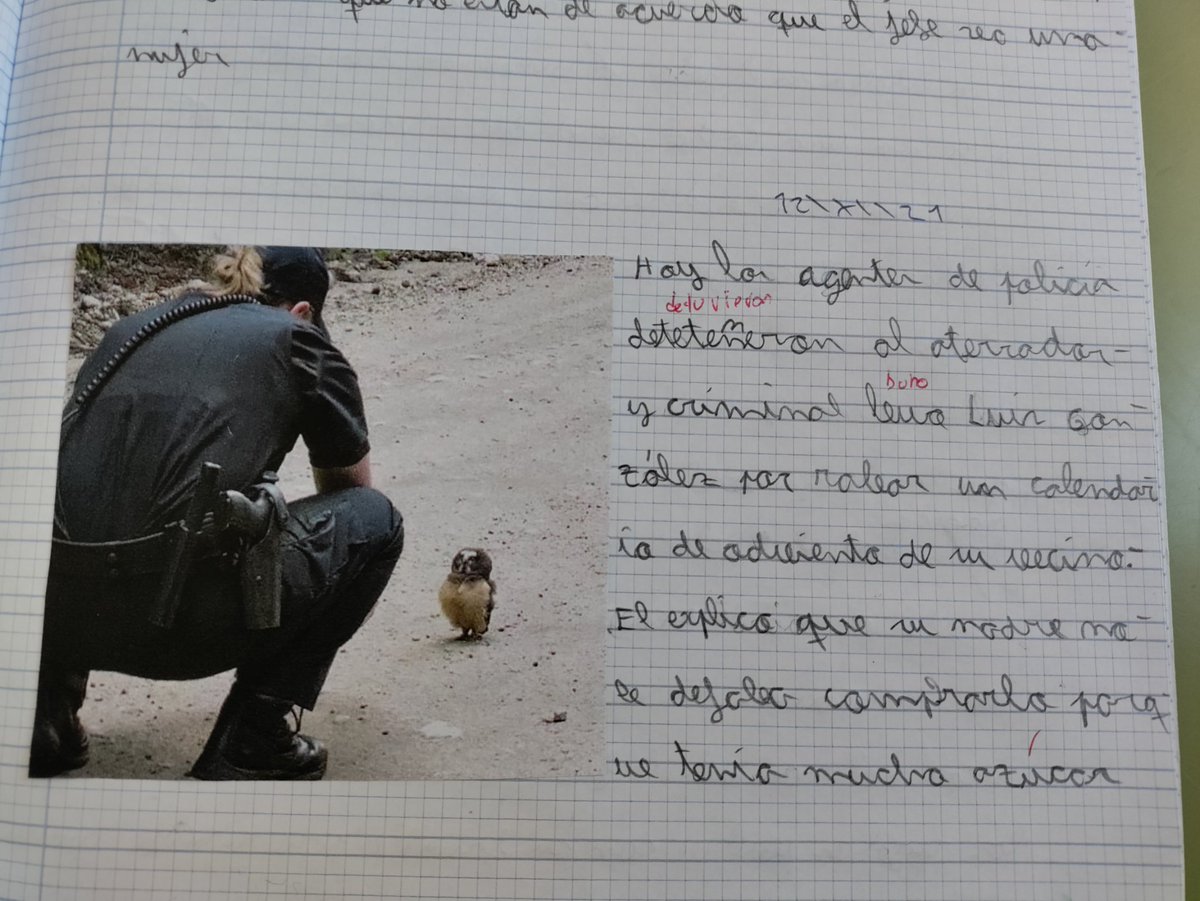 que no eran de acuerdo que el jefe sea una
mujer
12\XI\21
Hoy los agentes de policía
detuvieron
deteteñeron al aterrador
buho
y criminal Luis Gon-
zález por robar un calendar
io de adviento de su vecino.
El explicó que su madre no
le dejaba comprarlo porq
ue tenía mucho azúcar